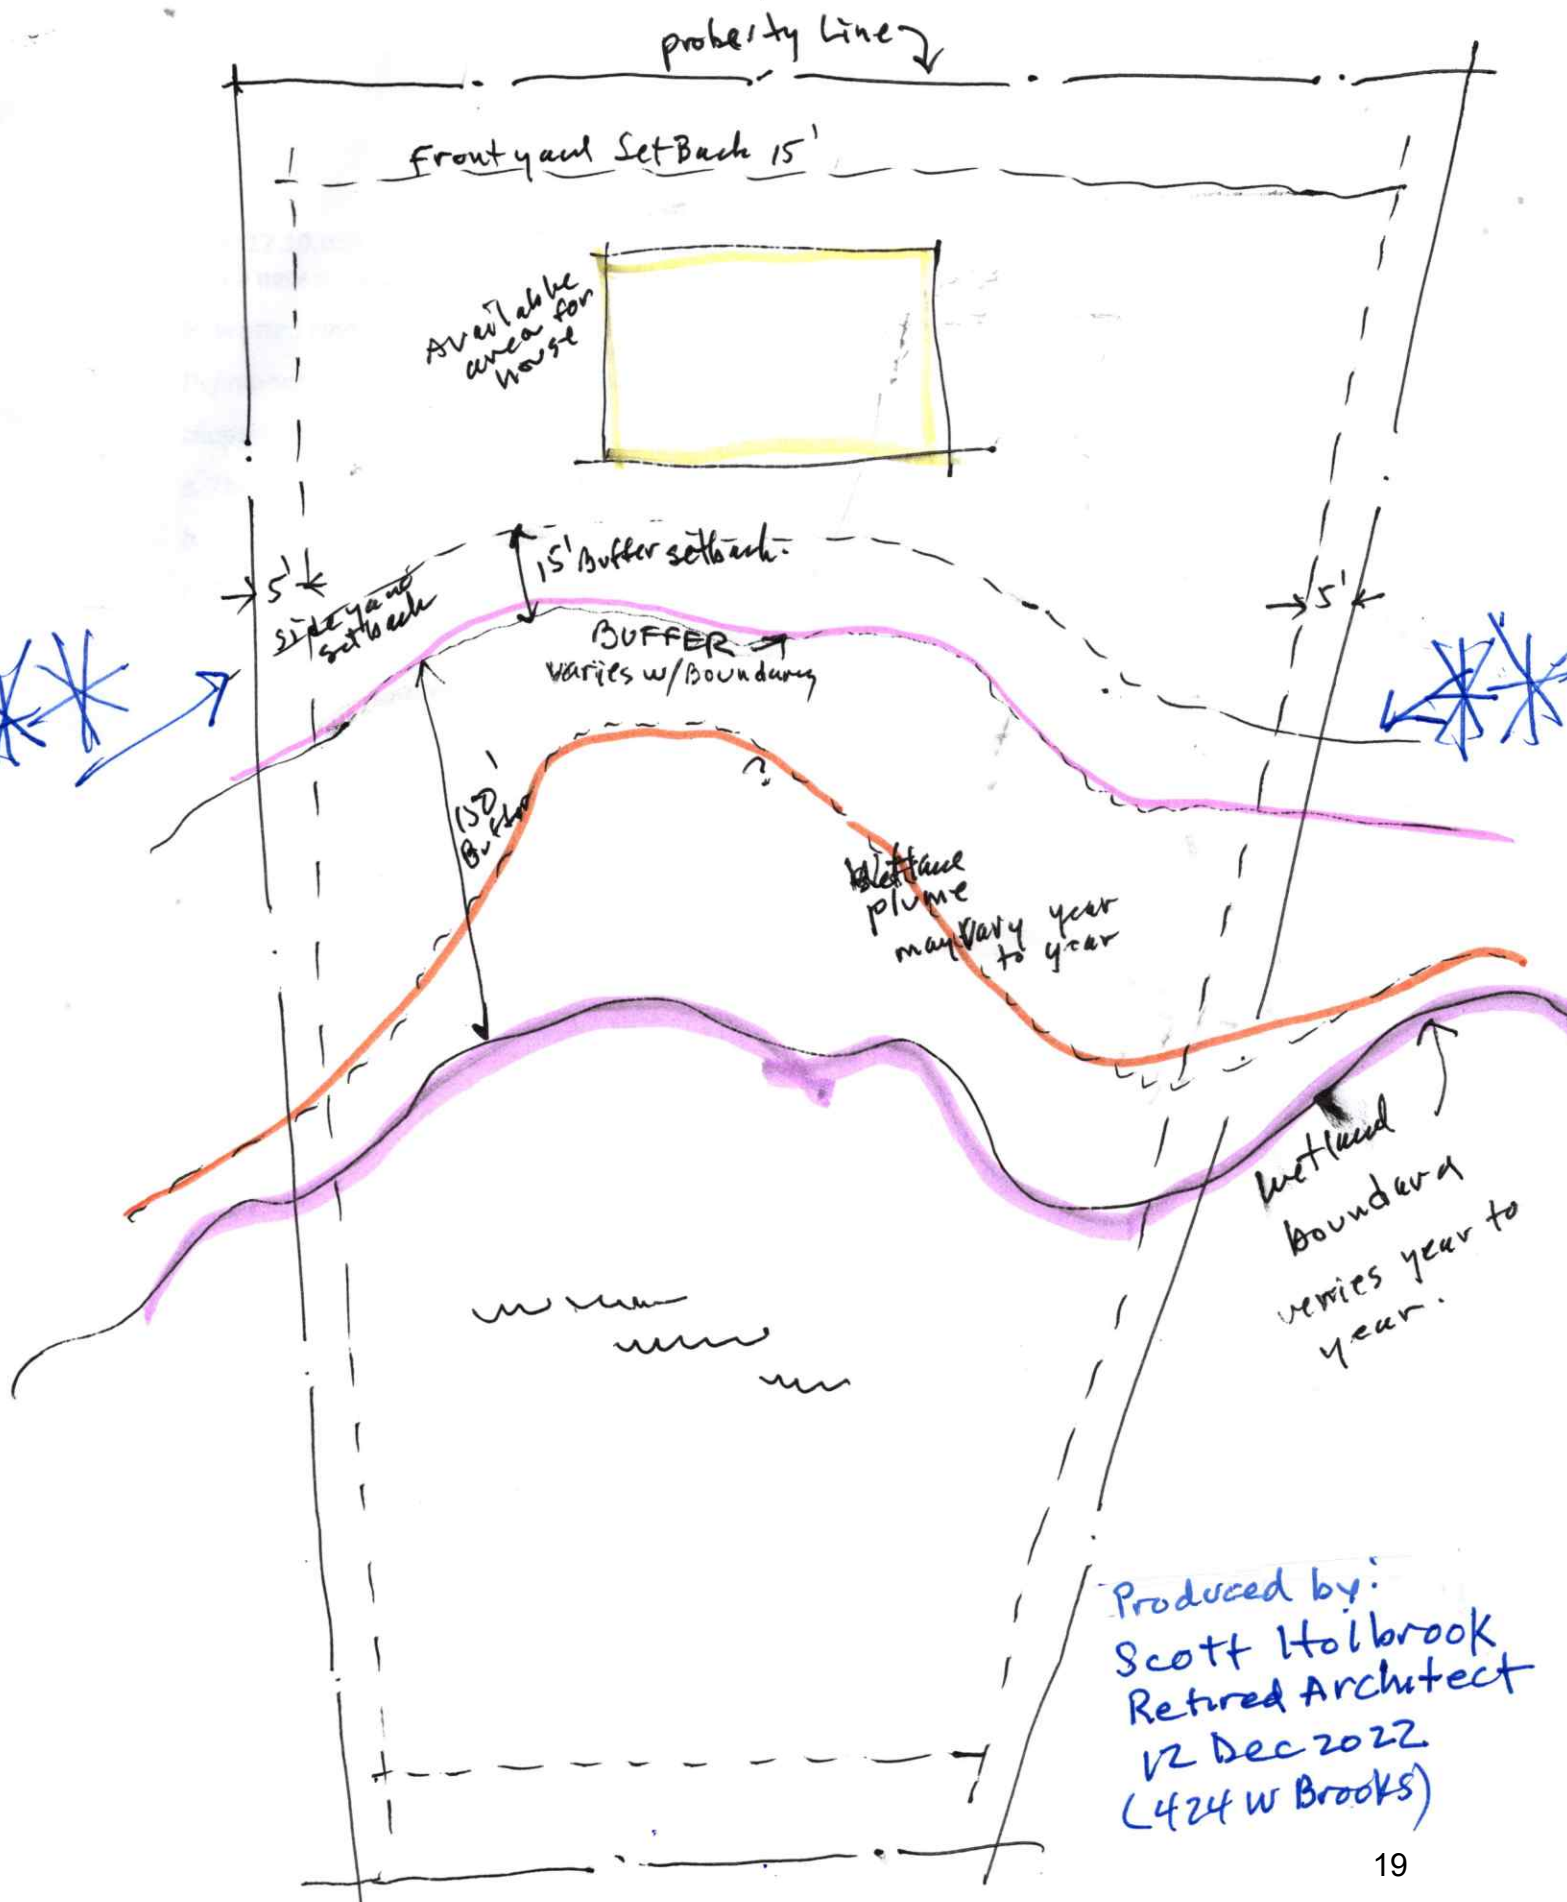 property Line
Frontyard SetBack 15'
Available
area for
house
15' Buffer setback.
5'
side yard
setback
5'
BUFFER
varies w/Boundary
150'
Buffer
?
Wetland
plume
may vary year
to year
wetland
boundary
verries year to
year.
Produced by:
Scott Holbrook
Retired Architect
12 Dec 2022
(424 W Brooks)
19